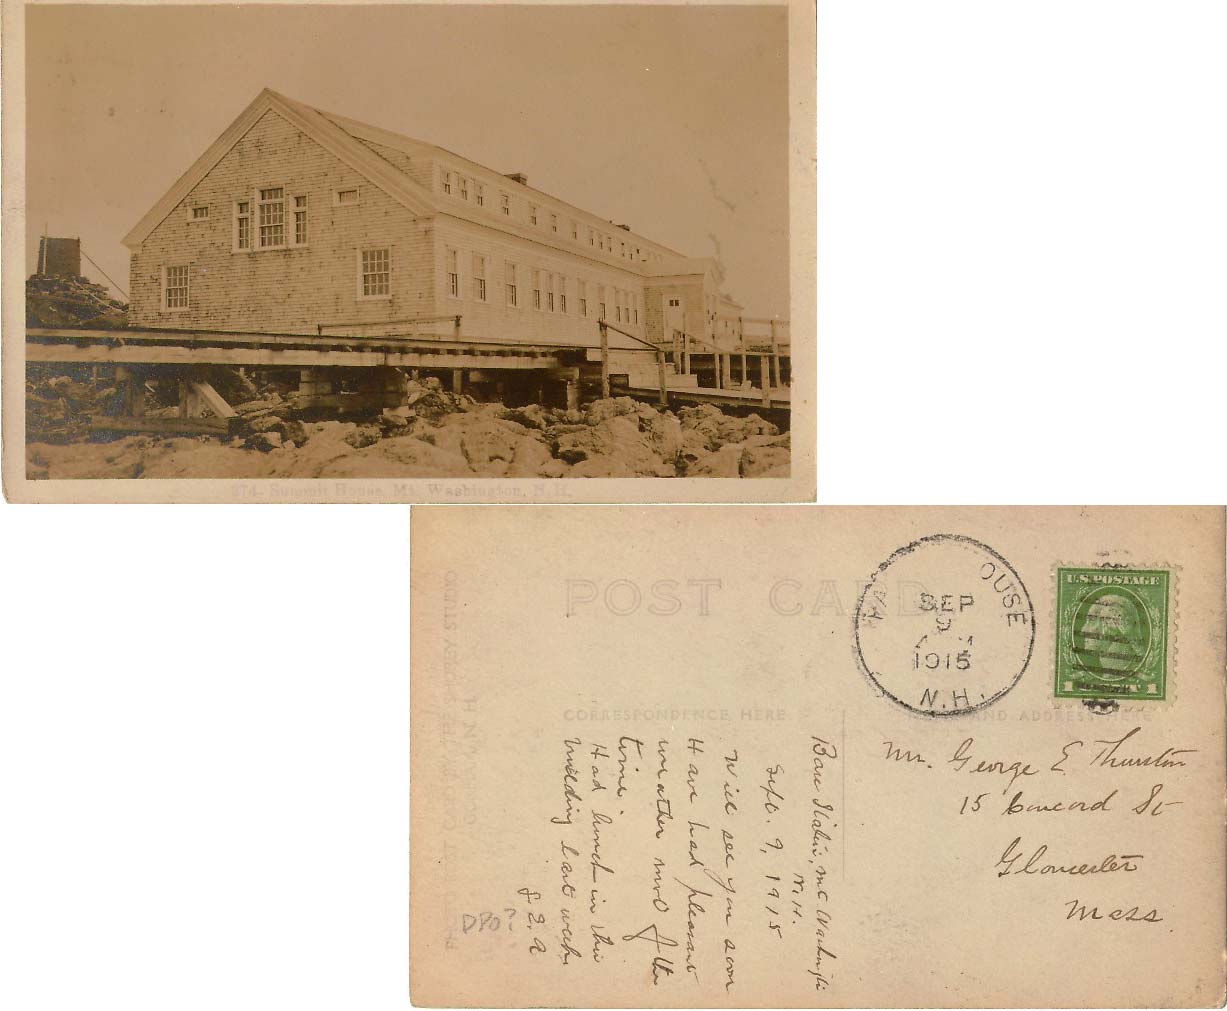 374- Summit House, Mt. Washington, N.H.
POST CARD
OUSE
SEP
9
1915
N.H.
U.S. POSTAGE
1 1
CORRESPONDENCE HERE
NAME AND ADDRESS HERE
Base Station, Mt Washington
N.H.
Sept. 9, 1915
Will see you soon
Have had pleasant
weather most of the
time.
Had lunch in this
building last week.
J. E. A
Mr. George E. Thurston
15 Concord St
Gloucester
Mass.
DPO?